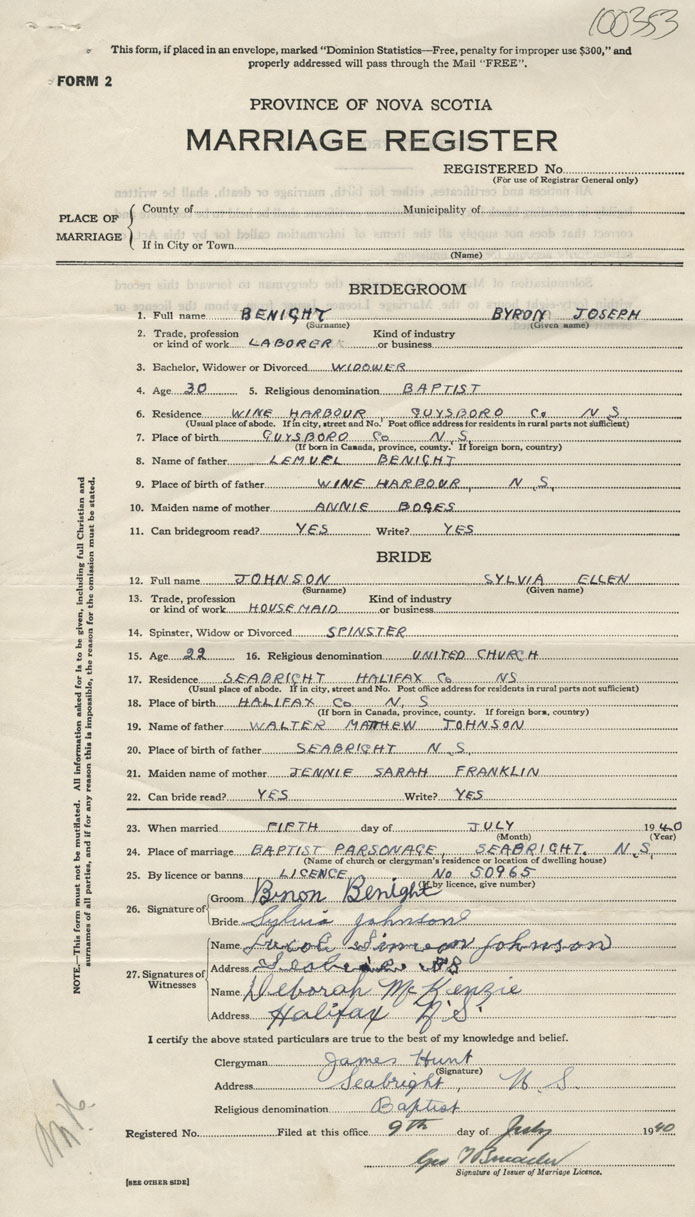 100353
This form, if placed in an envelope, marked "Dominion Statistics—Free, penalty for improper use $300," and
properly addressed will pass through the Mail "FREE".
FORM 2
PROVINCE OF NOVA SCOTIA
MARRIAGE REGISTER
REGISTERED No.
(For use of Registrar General only)
PLACE OF MARRIAGE
County of Municipality of
If in City or Town
(Name)
BRIDEGROOM
1. Full name BENIGHT BYRON JOSEPH
(Surname) (Given name)
2. Trade, profession Kind of industry
or kind of work LABORER or business
3. Bachelor, Widower or Divorced WIDOWER
4. Age 30 5. Religious denomination BAPTIST
6. Residence WINE HARBOUR, GUYSBORO Co N S
(Usual place of abode. If in city, street and No. Post office address for residents in rural parts not sufficient)
7. Place of birth GUYSBORO Co N.S.
(If born in Canada, province, county. If foreign born, country)
8. Name of father LEMUEL BENIGHT
9. Place of birth of father WINE HARBOUR, N.S.
10. Maiden name of mother ANNIE BOGES
11. Can bridegroom read? YES Write? YES
BRIDE
12. Full name JOHNSON SYLVIA ELLEN
(Surname) (Given name)
13. Trade, profession Kind of industry
or kind of work HOUSEMAID or business
14. Spinster, Widow or Divorced SPINSTER
15. Age 22 16. Religious denomination UNITED CHURCH
17. Residence SEABRIGHT HALIFAX Co NS
(Usual place of abode. If in city, street and No. Post office address for residents in rural parts not sufficient)
18. Place of birth HALIFAX Co N. S
(If born in Canada, province, county. If foreign born, country)
19. Name of father WALTER MATHEW JOHNSON
20. Place of birth of father SEABRIGHT N.S.
21. Maiden name of mother JENNIE SARAH FRANKLIN
22. Can bride read? YES Write? YES
23. When married FIFTH day of JULY 1940
(Month) (Year)
24. Place of marriage BAPTIST PARSONAGE, SEABRIGHT. N.S.
(Name of church or clergyman's residence or location of dwelling house)
25. By licence or banns LICENCE No 50965
(If by licence, give number)
26. Signature of
Groom Benight
Bride Sylvia Johnson
27. Signatures of Witnesses
Name Simeon Johnson
Address NS
Name Deborah McKenzie
Address Halifax N.S.
I certify the above stated particulars are true to the best of my knowledge and belief.
Clergyman James Hunt
(Signature)
Address Seabright, N. S.
Religious denomination Baptist
Registered No. Filed at this office 9th day of July 1940
Geo
Signature of Issuer of Marriage Licence.
[SEE OTHER SIDE]
NOTE.—This form must not be mutilated. All information asked for is to be given, including full Christian and
surnames of all parties, and if for any reason this is impossible, the reason for the omission must be stated.